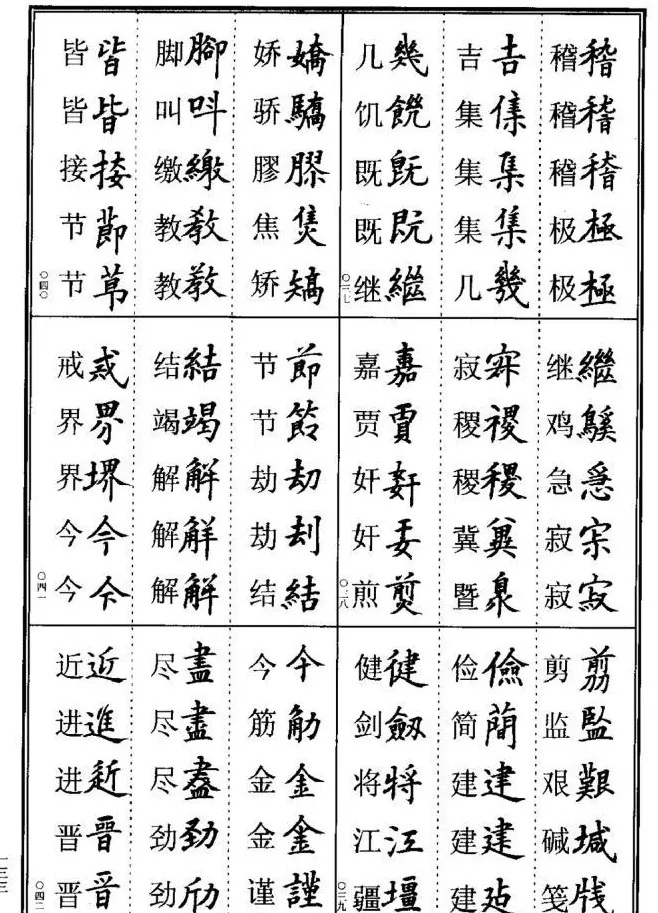 稽稽 稽稽 稽稽 极極 极極
吉吉 集集 集集 集集 几幾
几幾 饥饑 既既 既既 继繼
〇三七
继繼 鸡鷄 急急 寂寂 寂寂
寂寂 稷稷 稷稷 冀冀 暨暨
嘉嘉 贾賈 奸奸 奸奸 煎煎
〇三八
剪剪 监監 艰艱 碱堿 笺牋
俭儉 简簡 建建 建建 建建
健健 剑劒 将將 江江 疆壃
〇三九
娇嬌 骄驕 膠膠 焦焦 矫矯
脚腳 叫叫 缴繳 教教 教教
皆皆 皆皆 接接 节節 节節
〇四〇
节節 节節 劫劫 劫刦 结結
结結 竭竭 解解 解解 解解
戒戒 界界 界堺 今今 今今
〇四一
今今 筋筋 金金 金金 谨謹
尽盡 尽盡 尽盡 劲勁 劲劲
近近 进進 进進 晋晉 晋晋
〇四二
一三三